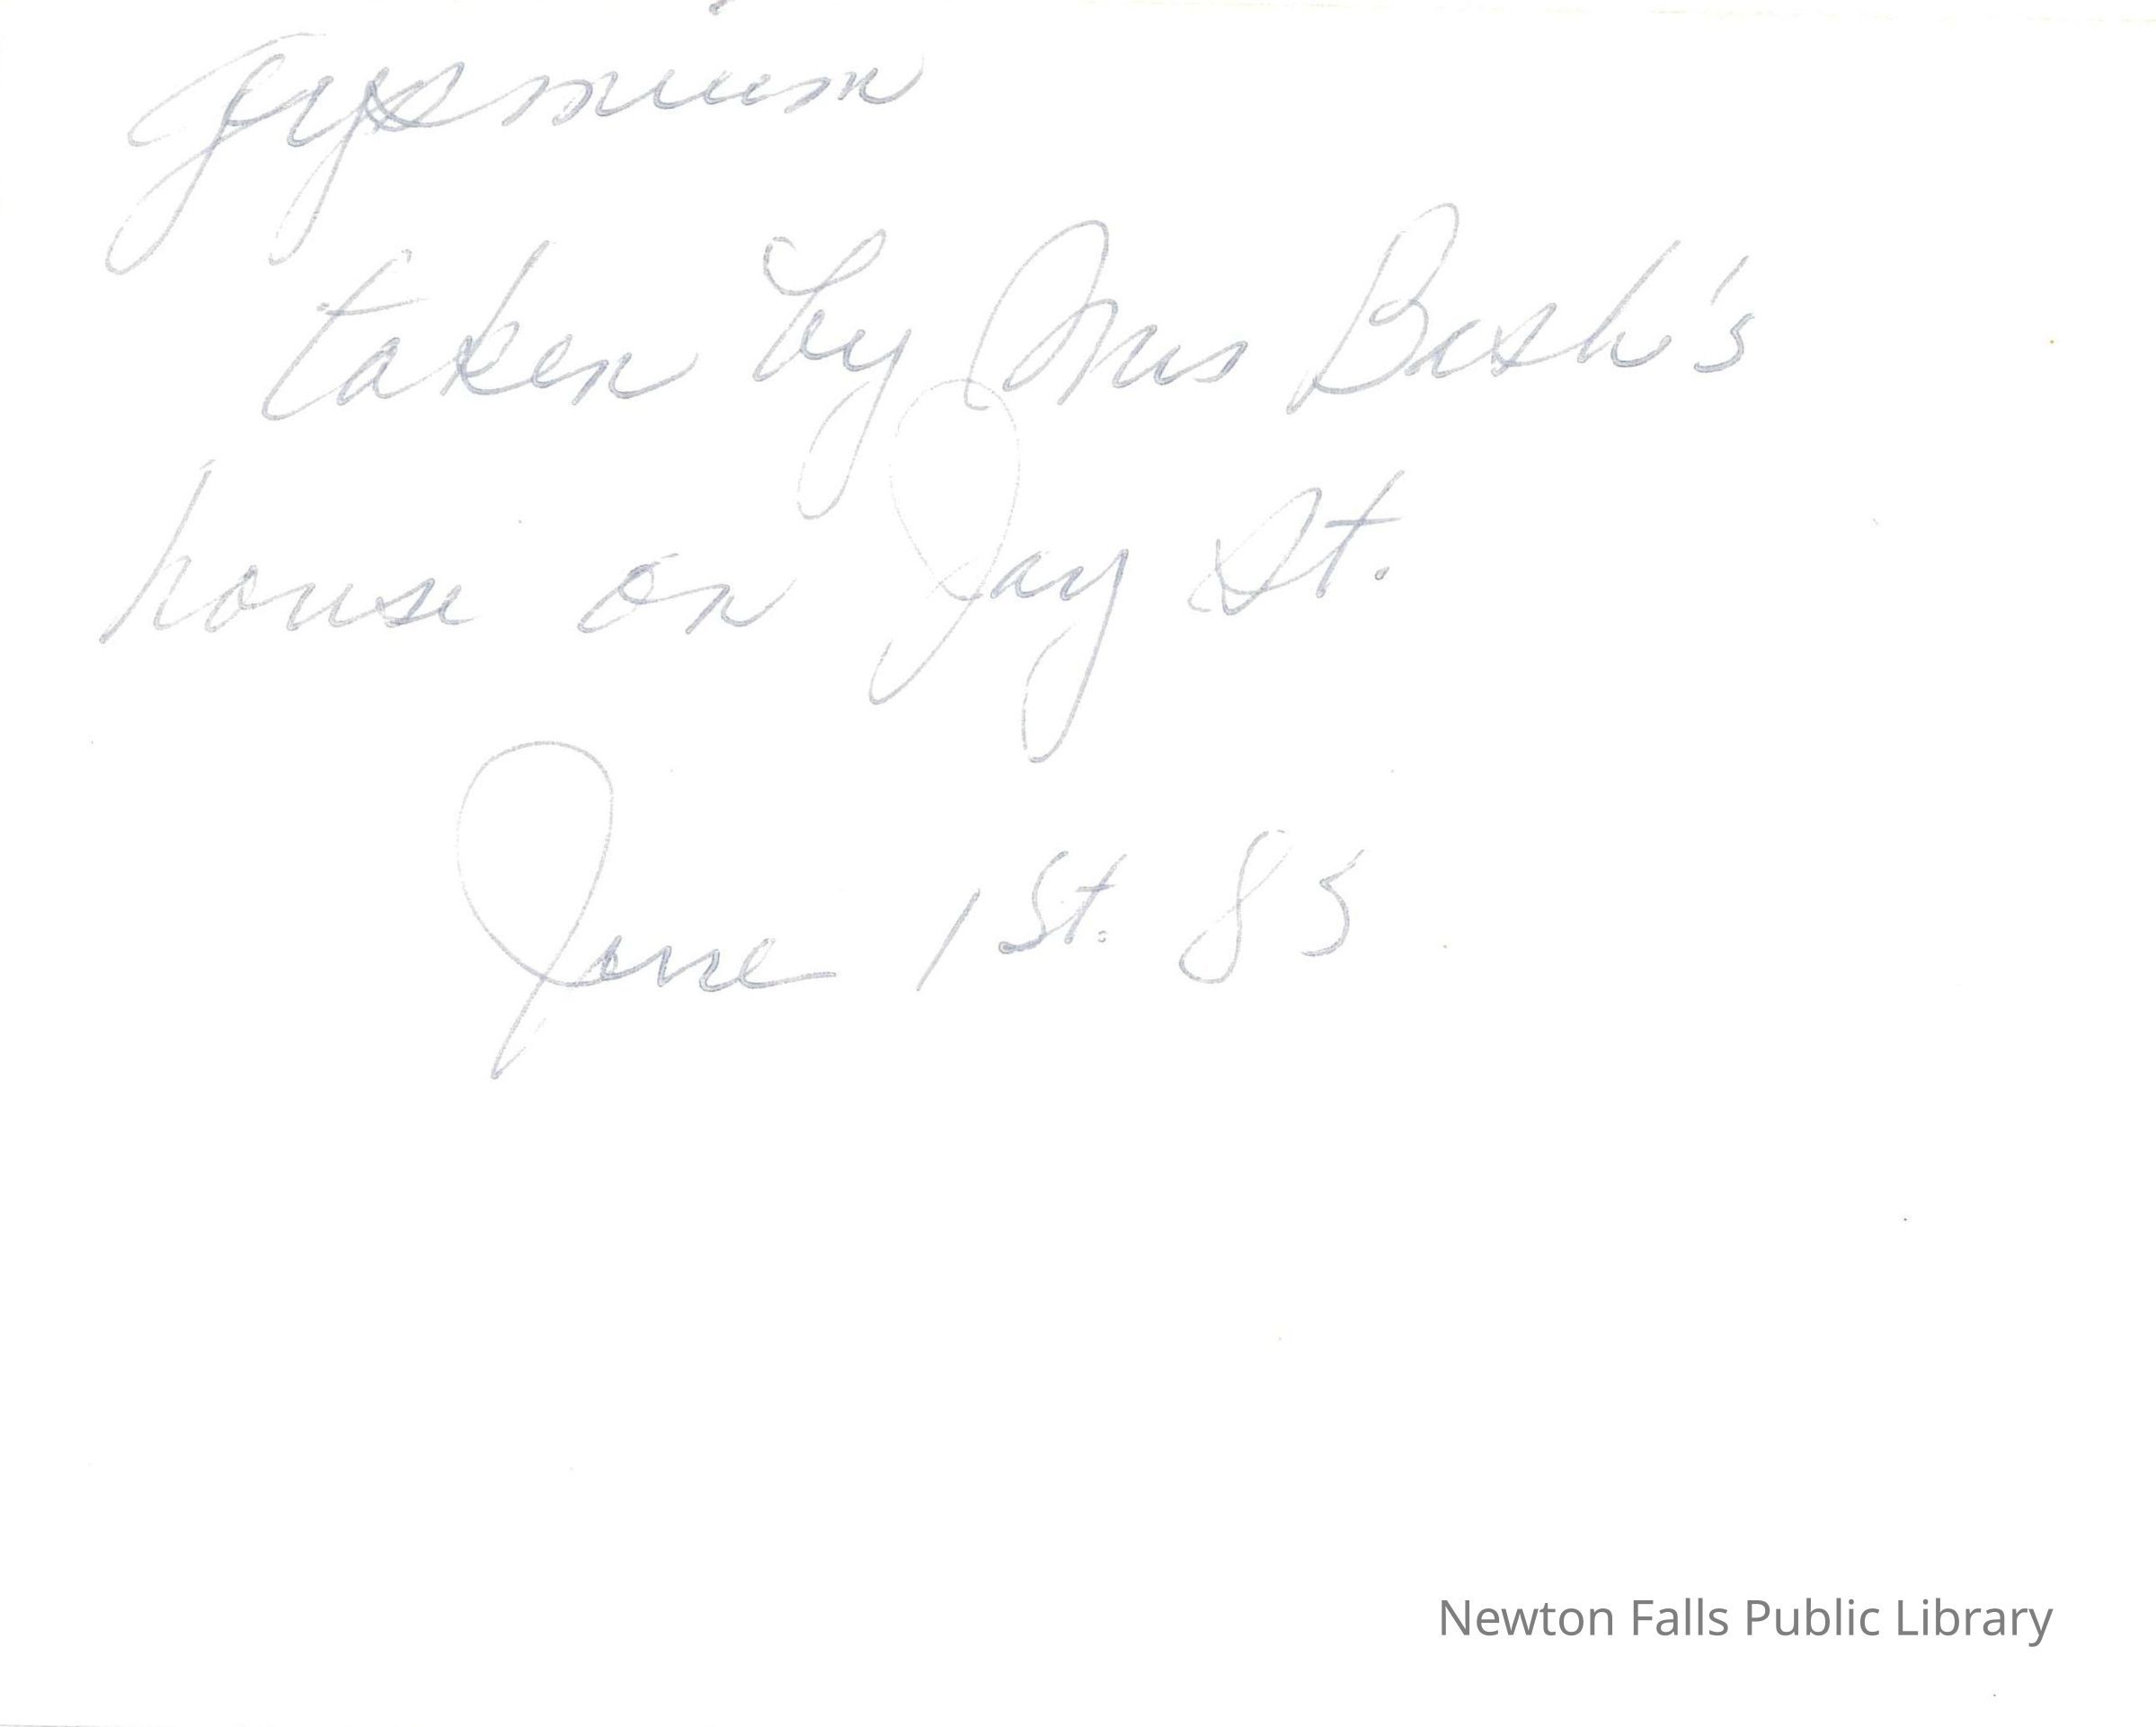 taken by Mrs Bush's
house on Jay St.
June 1St. 85
Newton Falls Public Library